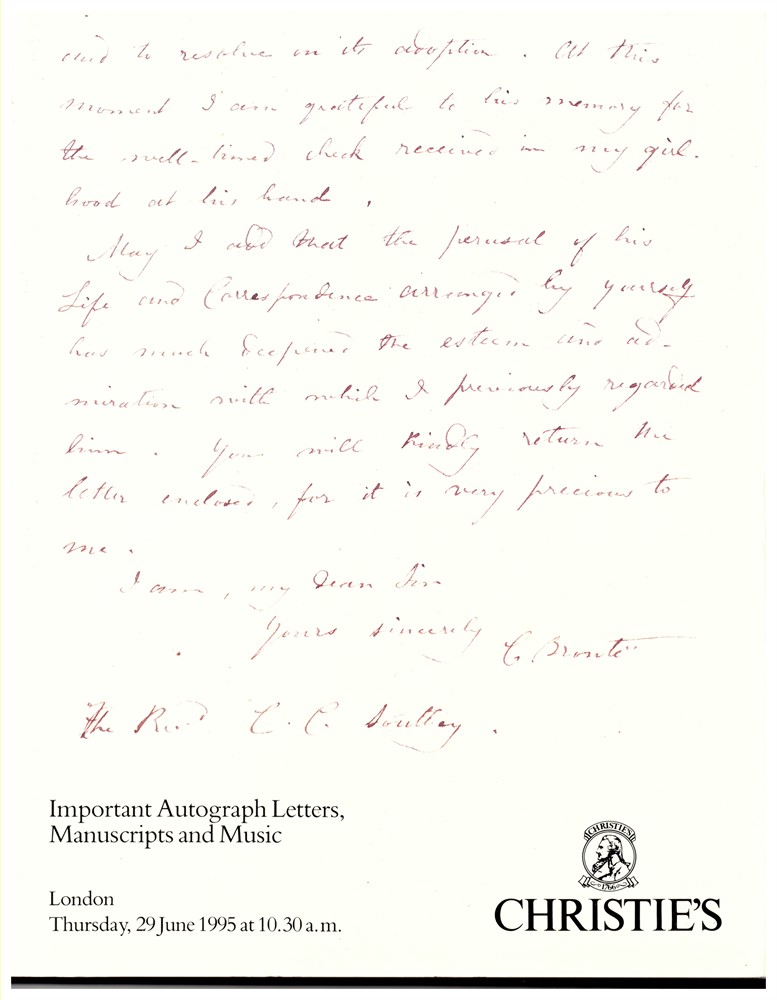 and to resolve on its adoption. At this
moment I am grateful to his memory for
the well-timed check received in my girl-
hood at his hand.
May I add that the perusal of his
Life and Correspondence arranged by yourself
has much deepened the esteem and ad-
miration with which I previously regarded
him. You will kindly return the
letter enclosed, for it is very precious to
me.
I am, my dear Sir
Yours sincerely
C Brontë
The Revd C. C. Southey.
Important Autograph Letters,
Manuscripts and Music
London
Thursday, 29 June 1995 at 10.30 a.m.
CHRISTIE'S
1766
CHRISTIE'S